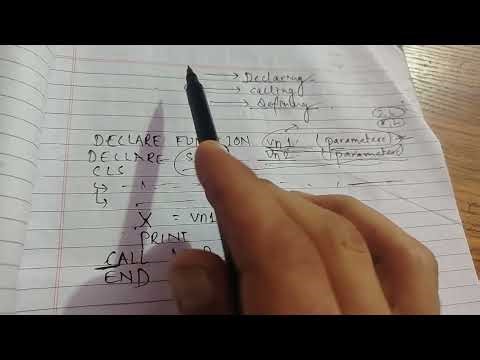 → Declaring
→ calling
→ Defining
DECLARE FUNCTION vn1 (parameters)
DECLARE S vn2 (parameters)
CLS
X = vn1
PRINT
CALL
END